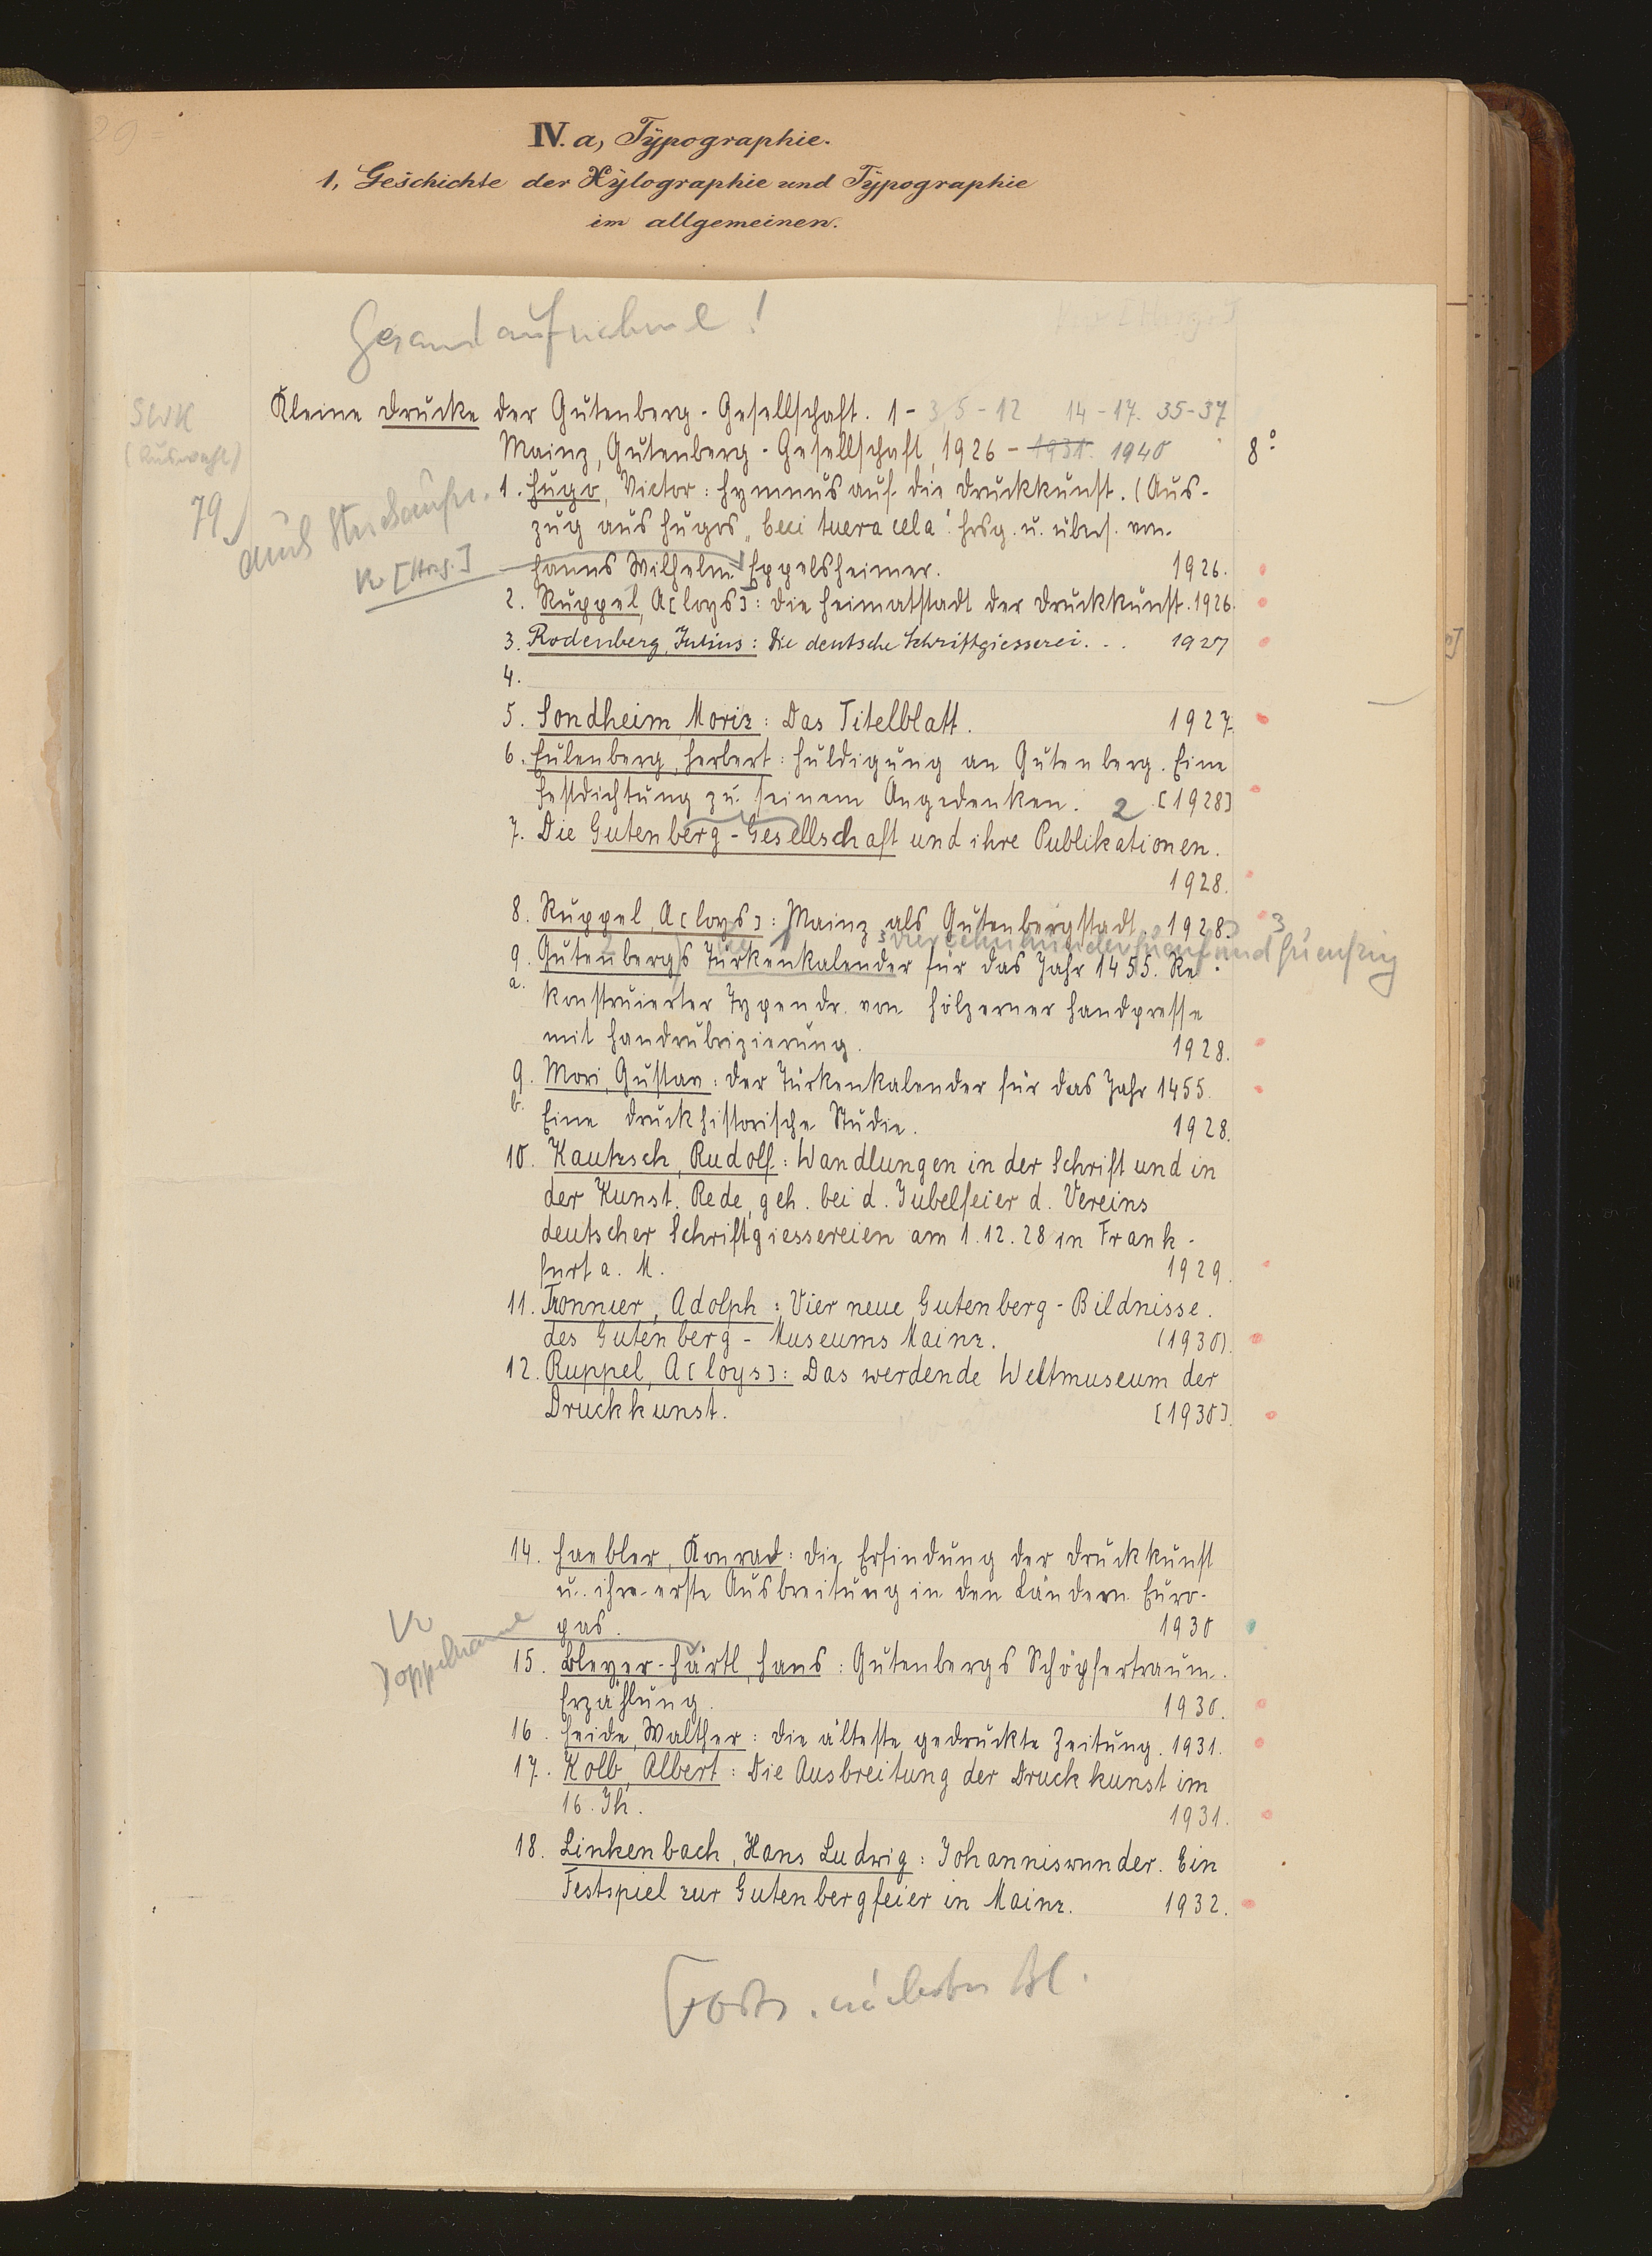 IV. a, Typographie.
1, Geschichte der Xylographie und Typographie
im allgemeinen.
Gesamtaufnahme!
SWK
(Auswahl)
79
auch Stückaufn.
Kleine Drucke der Gutenberg-Gesellschaft. 1-3, 5-12 14-17. 35-37
Mainz, Gutenberg-Gesellschaft, 1926 - 1931. 1940 8°
1. Hugo, Victor: Hymnus auf die Druckkunst. (Aus-
zug aus Hugos „Ceci tuera cela". Hrsg. u. übers. von
Vw [Hrsg.]
Hanns Wilhelm Eppelsheimer. 1926.
2. Ruppel, A[loys]: Die Heimatstadt der Druckkunst. 1926.
3. Rodenberg, Julius: Die deutsche Schriftgiesserei. . . 1927
4.
5. Sondheim, Moriz: Das Titelblatt. 1927.
6. Eulenberg, Herbert: Huldigung an Gutenberg. Eine
Festdichtung zu seinem Angedenken. [1928]
2
7. Die Gutenberg-Gesellschaft und ihre Publikationen.
1928.
8. Ruppel, A[loys]: Mainz als Gutenbergstadt. 1928.
3 vierzehnhundertfünfundfünfzig 3
9. Gutenbergs Türkenkalender für das Jahr 1455. Re-
a. konstruierter Typendr. von hölzerner Handpresse
mit Handrubrizierung. 1928.
9. Mori, Gustav: Der Türkenkalender für das Jahr 1455.
b. Eine druckhistorische Studie. 1928.
10. Kautzsch, Rudolf: Wandlungen in der Schrift und in
der Kunst. Rede, geh. bei d. Jubelfeier d. Vereins
deutscher Schriftgiessereien am 1.12.28 in Frank-
furt a. M. 1929.
11. Tronnier, Adolph: Vier neue Gutenberg-Bildnisse.
des Gutenberg-Museums Mainz. (1930).
12. Ruppel, A[loys]: Das werdende Weltmuseum der
Druckkunst. [1930].
14. Haebler, Konrad: Die Erfindung der Druckkunst
u. ihre erste Ausbreitung in den Ländern Euro-
pas. 1930
Vw
Doppelname
15. Bleyer-Härtl, Hans: Gutenbergs Schöpfertraum.
Erzählung. 1930.
16. Heide, Walther: Die älteste gedruckte Zeitung. 1931.
17. Kolb, Albert: Die Ausbreitung der Druckkunst im
16. Jh. 1931.
18. Linkenbach, Hans Ludwig: Johanniswunder. Ein
Festspiel zur Gutenbergfeier in Mainz. 1932.
Forts. nächstes Bl.